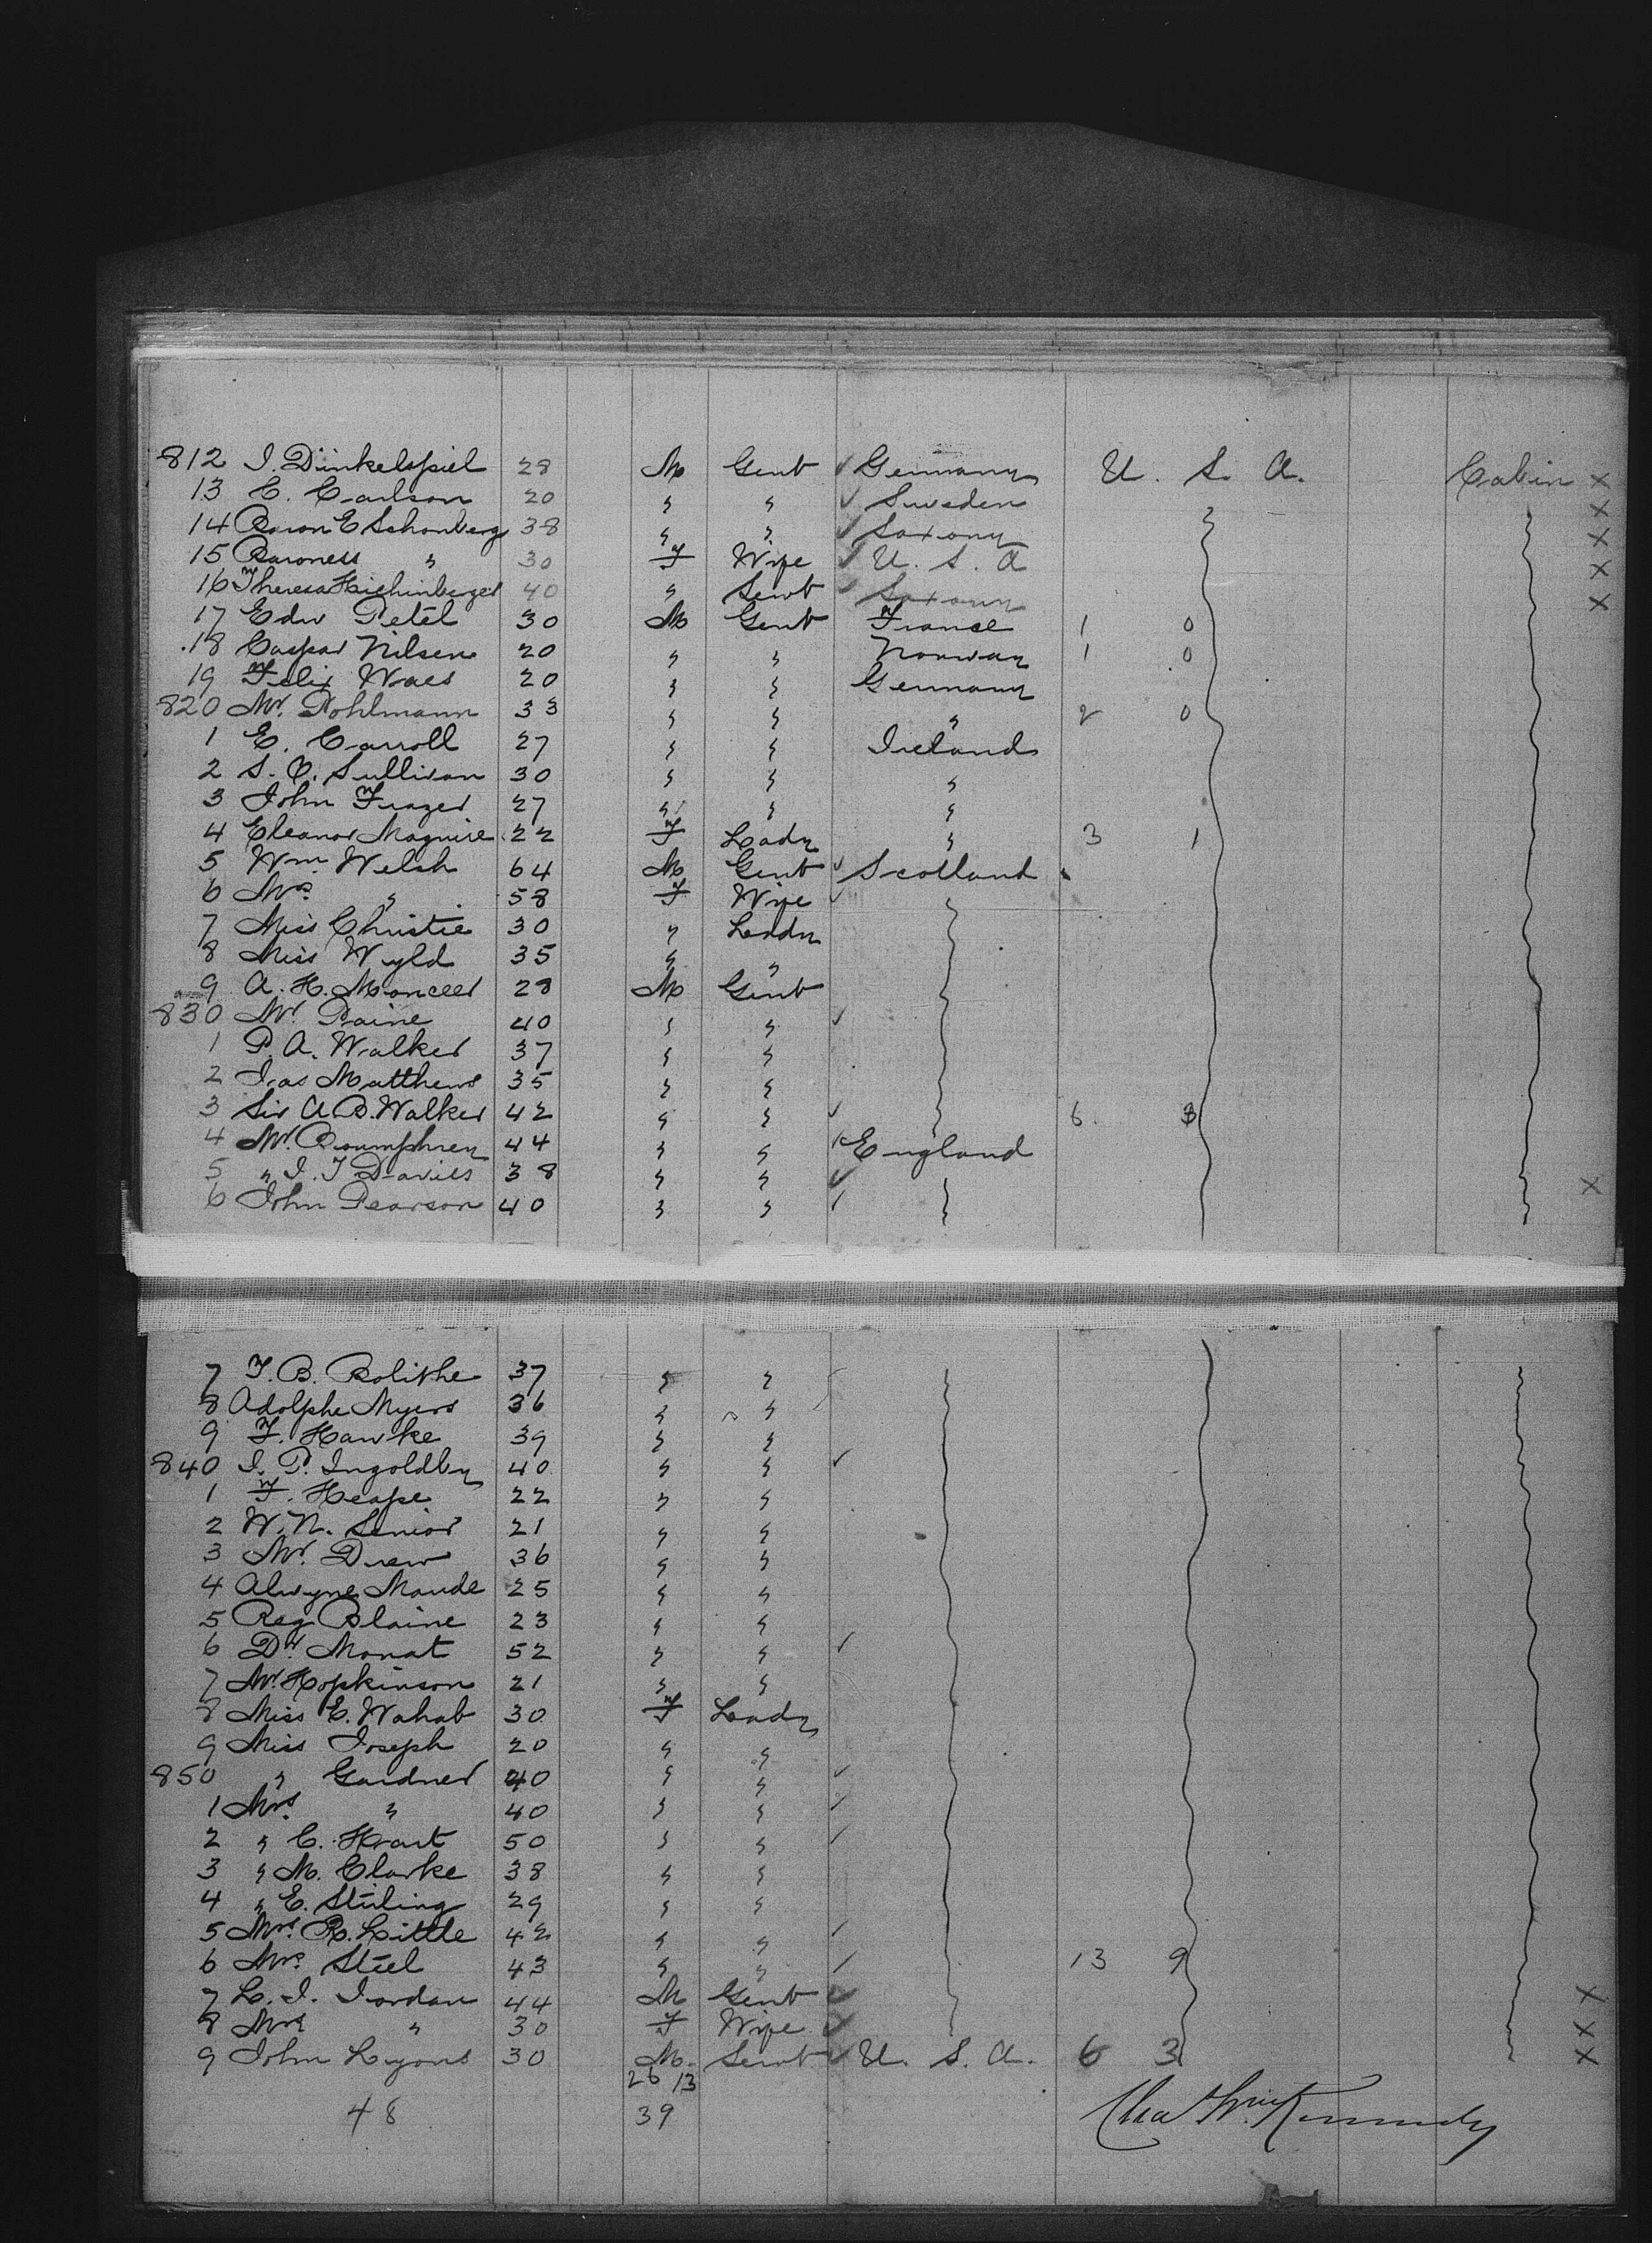 812 I. Dinkelspiel 28 M Gent ✓ Germany U. S. A. Cabin X
13 C. Carlson 20 " " ✓ Sweden X
14 Baron E Schonberg 38 " " ✓ Saxony X
15 Baroness " 30 F Wife ✓ U. S. A X
16 Theresa 40 " Servt ✓ Saxony X
17 Edw Petel 30 M Gent France 1 0
18 Caspar Nilsen 20 " " Norway 1 0
19 Felix Waes 20 " " Germany
820 Mr. Pohlmann 33 " " " 2 0
1 E. Carroll 27 " " Ireland
2 S. O. Sullivan 30 " " "
3 John Frazer 27 " " "
4 Eleanor Maguire 22 F Lady " 3 1
5 Wm. Welsh 64 M Gent ✓ Scotland
6 Mrs " 58 F Wife ✓
7 Miss Christie 30 " Lady
8 Miss Wyld 35 " "
9 A. H. 28 M Gent
830 Mr. Paine 40 " " ✓
1 P. A. Walker 37 " "
2 Jas Matthews 35 " "
3 Sir A. B. Walker 42 " " ✓ 6 3
4 Mr. Boumphrey 44 " " England
5 " J. T Davies 38 " " ✓ X
6 John Pearson 40 " " ✓
7 T. B. Bolithe 37 " " ✓
8 Adolphe Myers 36 " "
9 F. Hawke 39 " "
840 J. P. Ingoldby 40 " " ✓
1 F. Heape 22 " "
2 W. N. Senior 21 " "
3 Mr. Drew 36 " "
4 Alwyne Maude 25 " "
5 Reg Blaine 23 " "
6 Dr. Monat 52 " " ✓
7 Mr. Hopkinson 21 " "
8 Miss E. Wahab 30 F Lady
9 Miss Joseph 20 " "
850 " Gardner 40 " " ✓
1 Mrs. " 40 " " ✓
2 " C. Hart 50 " " ✓
3 " M. Clarke 38 " "
4 " E. Stirling 29 " "
5 Mrs. R. Little 42 " " ✓
6 Mrs. Steel 43 " " ✓ 13 9
7 L. J. Jordan 44 M Gent ✓ X
8 Mrs " 30 F Wife ✓ X
9 John Lyons 30 M. Servt ✓ U. S. A. 6 3 X
26 13
48 39 Chas Wm Kennedy